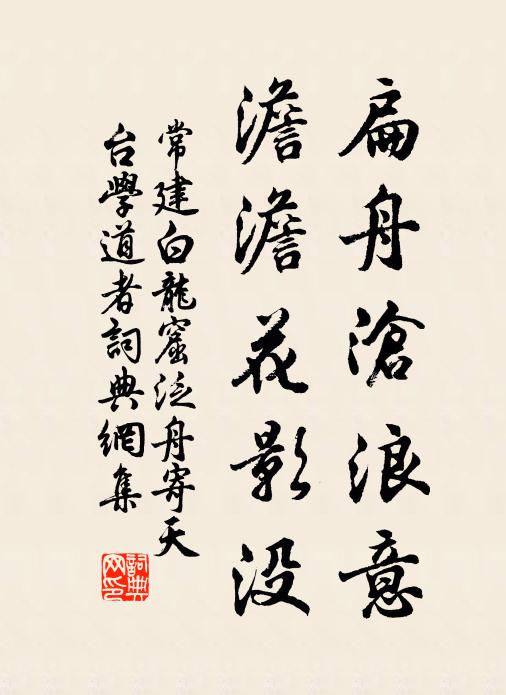 扁舟滄浪意
澹澹花影没
常建白龍窟泛舟寄天
台學道者詞典網集
詞典
网印